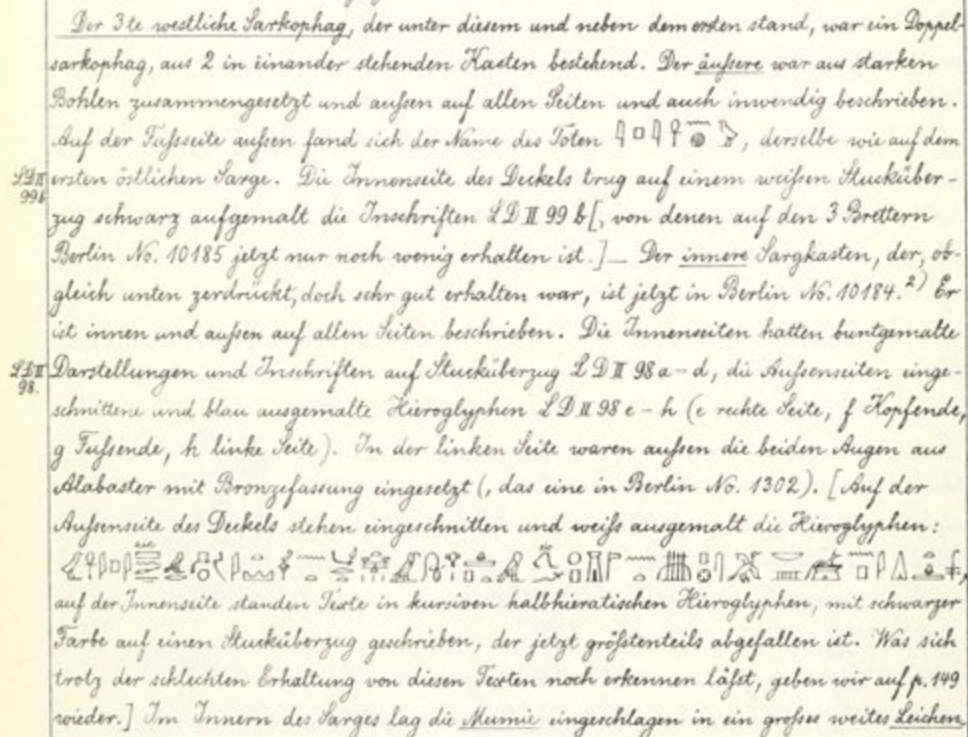 Der 3te westliche Sarkophag, der unter diesem und neben dem ersten stand, war ein Doppel-
sarkophag, aus 2 in einander stehenden Kasten bestehend. Der äußere war aus starken
Bohlen zusammengesetzt und außen auf allen Seiten und auch inwendig beschrieben.
Auf der Fußseite außen fand sich der Name des Toten 𓇋𓊪𓇋𓋹𓈖𓐍𓅱, derselbe wie auf dem
LD II 99b ersten östlichen Sarge. Die Innenseite des Deckels trug auf einem weißen Stucküber-
zug schwarz aufgemalt die Inschriften LD II 99 b [, von denen auf den 3 Brettern
Berlin No. 10185 jetzt nur noch wenig erhalten ist.] — Der innere Sargkasten, der, ob-
gleich unten zerdrückt, doch sehr gut erhalten war, ist jetzt in Berlin No. 10184.²) Er
ist innen und außen auf allen Seiten beschrieben. Die Innenseiten hatten buntgemalte
LD II 98. Darstellungen und Inschriften auf Stucküberzug LD II 98 a – d, die Außenseiten einge-
schnittene und blau ausgemalte Hieroglyphen LD II 98 e – h (e rechte Seite, f Kopfende,
g Fußende, h linke Seite). In der linken Seite waren außen die beiden Augen aus
Alabaster mit Bronzefassung eingesetzt (, das eine in Berlin No. 1302). [Auf der
Außenseite des Deckels stehen eingeschnitten und weiß ausgemalt die Hieroglyphen:
sic
auf der Innenseite standen Texte in kursiven halbhieratischen Hieroglyphen, mit schwarzer
Farbe auf einen Stucküberzug geschrieben, der jetzt größtenteils abgefallen ist. Was sich
trotz der schlechten Erhaltung von diesen Texten noch erkennen läßt, geben wir auf p. 149
wieder.] Im Innern des Sarges lag die Mumie eingeschlagen in ein großes weites Leichen